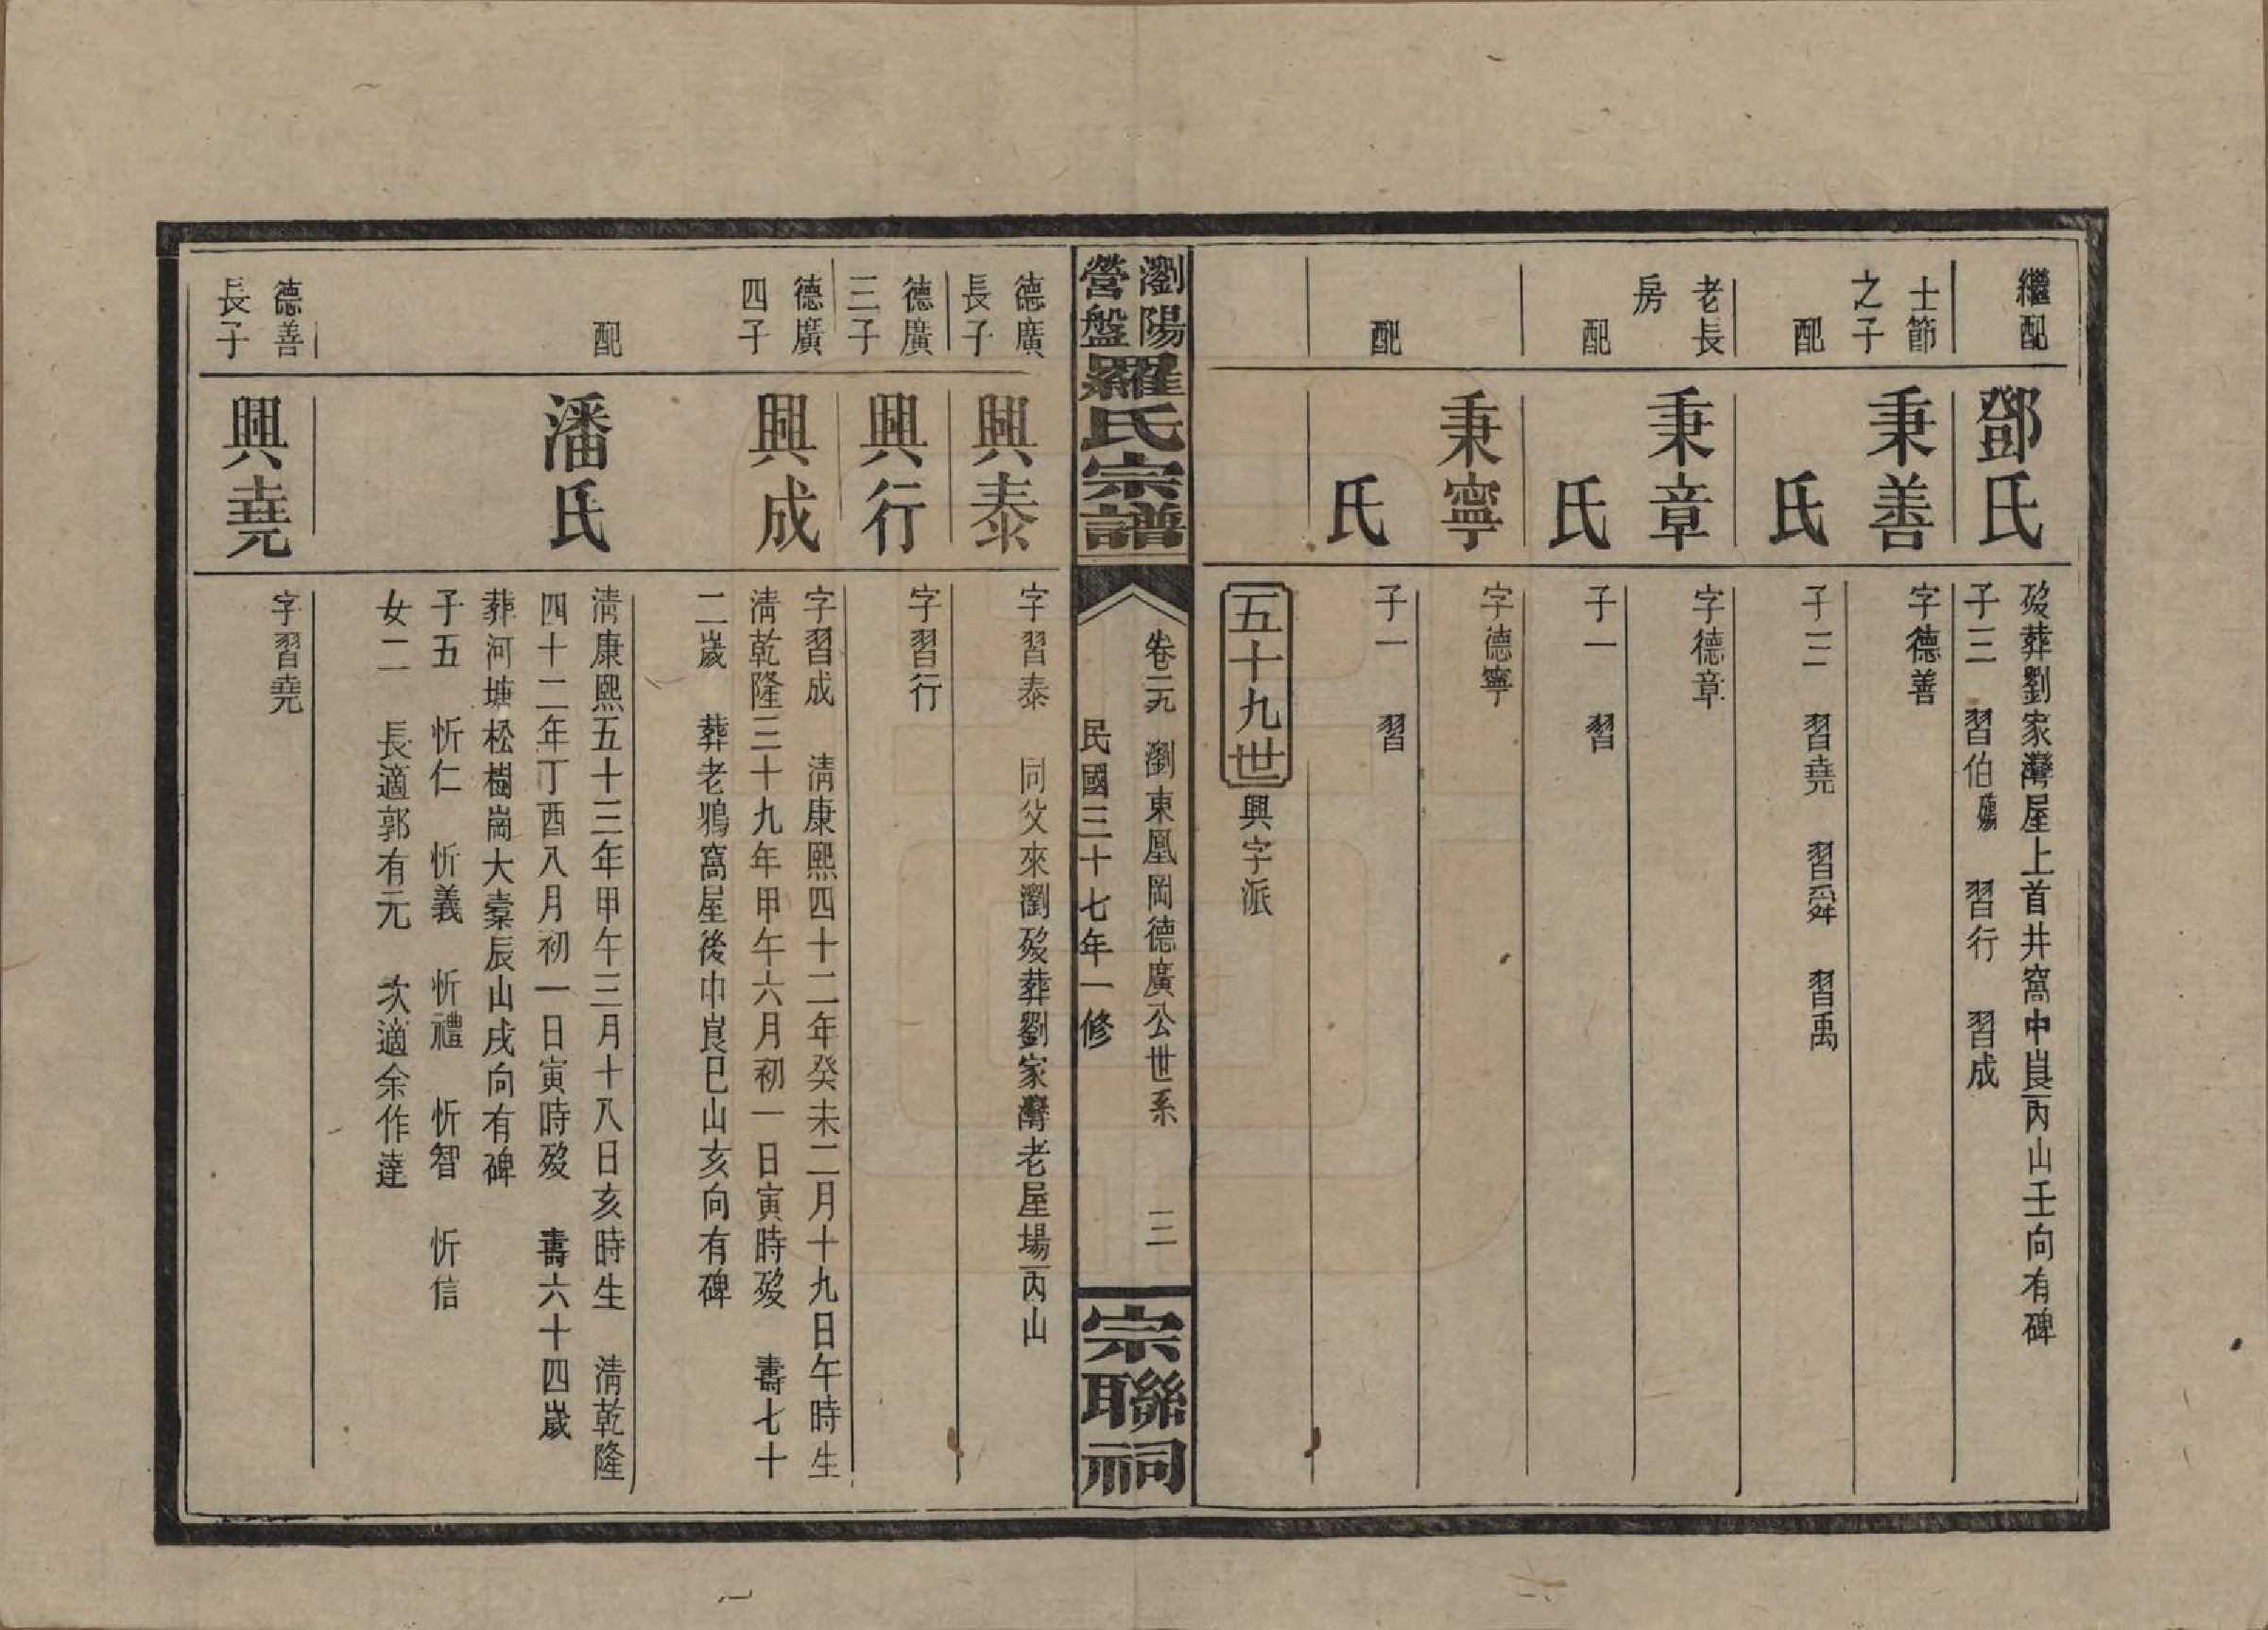 繼配
鄧氏
歿葬劉家灣屋上首井窩中崀丙山壬向有碑
子三　習伯殤　習行　習成
士節
之子
秉善
字德善
配
氏
子三　習堯　習舜　習禹
老長
房
秉章
字德章
配
氏
子一　習
秉寧
字德寧
配
氏
子一　習
五十九世興字派
瀏陽
營盤
羅氏宗譜
卷二九　瀏東凰岡德廣公世系　三
民國三十七年一修
宗聯祠
德廣
長子
興泰
字習泰　同父來瀏歿葬劉家灣老屋場丙山
德廣
三子
興行
字習行
德廣
四子
興成
字習成　清康熙四十二年癸未二月十九日午時生
清乾隆三十九年甲午六月初一日寅時歿　壽七十
二歲　葬老鴉窩屋後巾崀巳山亥向有碑
配
潘氏
清康熙五十三年甲午三月十八日亥時生　清乾隆
四十二年丁酉八月初一日寅時歿　壽六十四歲
葬河塘松樹崗大橐辰山戌向有碑
子五　忻仁　忻義　忻禮　忻智　忻信
女二　長適郭有元　次適余作達
德善
長子
興堯
字習堯